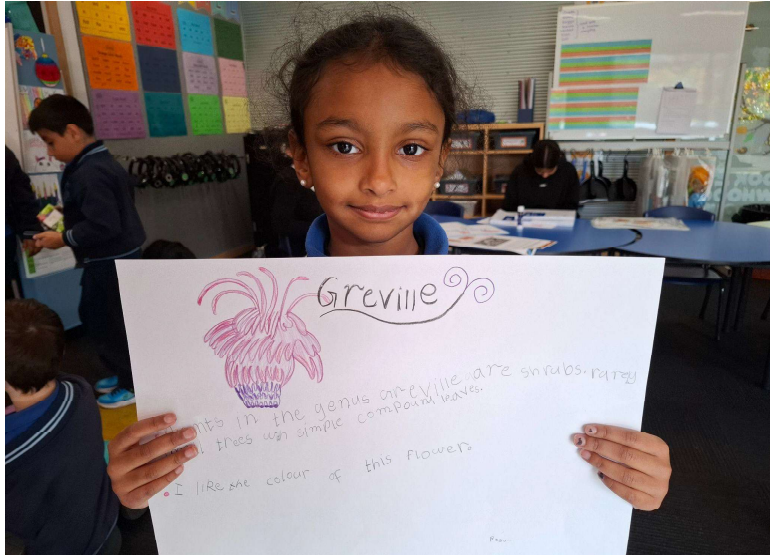 Greville
Plants in the genus Greville are shrubs. rarey
trees with simple compound leaves.
I like the colour of this flower.